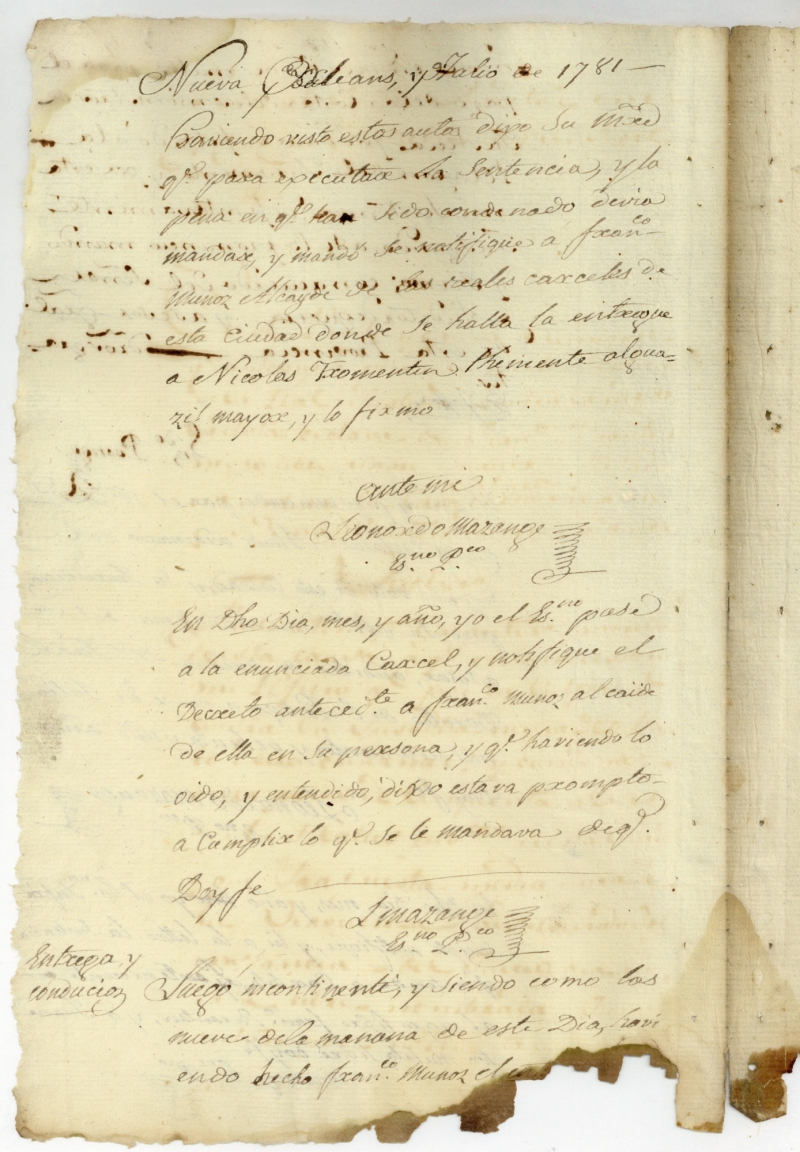 Nueva Orleans, y Julio de 1781
Haviendo visto estos autos dixo su mrẽd
q.ͤ para executar la Sentencia, y la
pena en q.ͤ han sido condenado, devia
mandar, y mandó se ratifique a fran.ᶜᵒ
Muñoz Alcayde de las reales carceles de
esta ciudad donde se halla la entregue
a Nicolas Fromentin theniente algua=
zil mayor, y lo firmo
Ante mi
Leonardo Mazange
Es.ⁿᵒ P.ᶜᵒ
En Dho Dia, mes, y año, yo el Es.ⁿᵒ pasé
a la enunciada Carcel, y notifique el
Decreto anteced.ᵗᵉ a fran.ᶜᵒ Muñoz alcaide
de ella en su persona, y q.ͤ haviendo lo
oido, y entendido, dixo estava prompto
a Cumplir lo q.ͤ se le mandava deq.ͤ
Doy fe
L Mazange
Es.ⁿᵒ P.ᶜᵒ
Entrega y
conducion
Luego incontinenti, y siendo como las
nueve dela mañana de este Dia, havi
endo hecho fran.ᶜᵒ Muñoz el